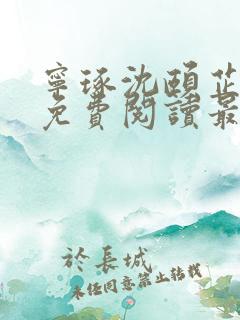 寧琢沈頤芷
免費閱讀最
於長城
未經同意禁止轉載